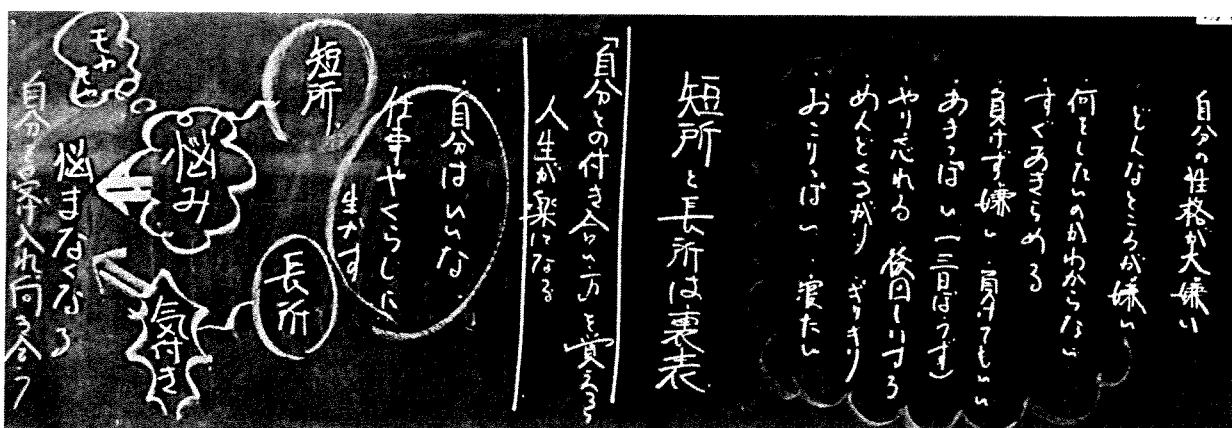 自分の性格が大嫌い
どんなところが嫌い
何をしたいのかわからない
すぐあきらめる
負けず嫌い 負けてもいい
あきっぽい(三日ぼうず)
やり忘れる 後回しにする
めんどくさがり ぎりぎり
・おこりっぽい ・寝たい
短所と長所は裏表
「自分との付き合い方」を覚える
人生が楽になる
・自分はいいな
・仕事やくらしに
生かす
短所
長所
悩み
気付き
モヤモヤ
悩まなくなる
自分を受け入れ向き合う